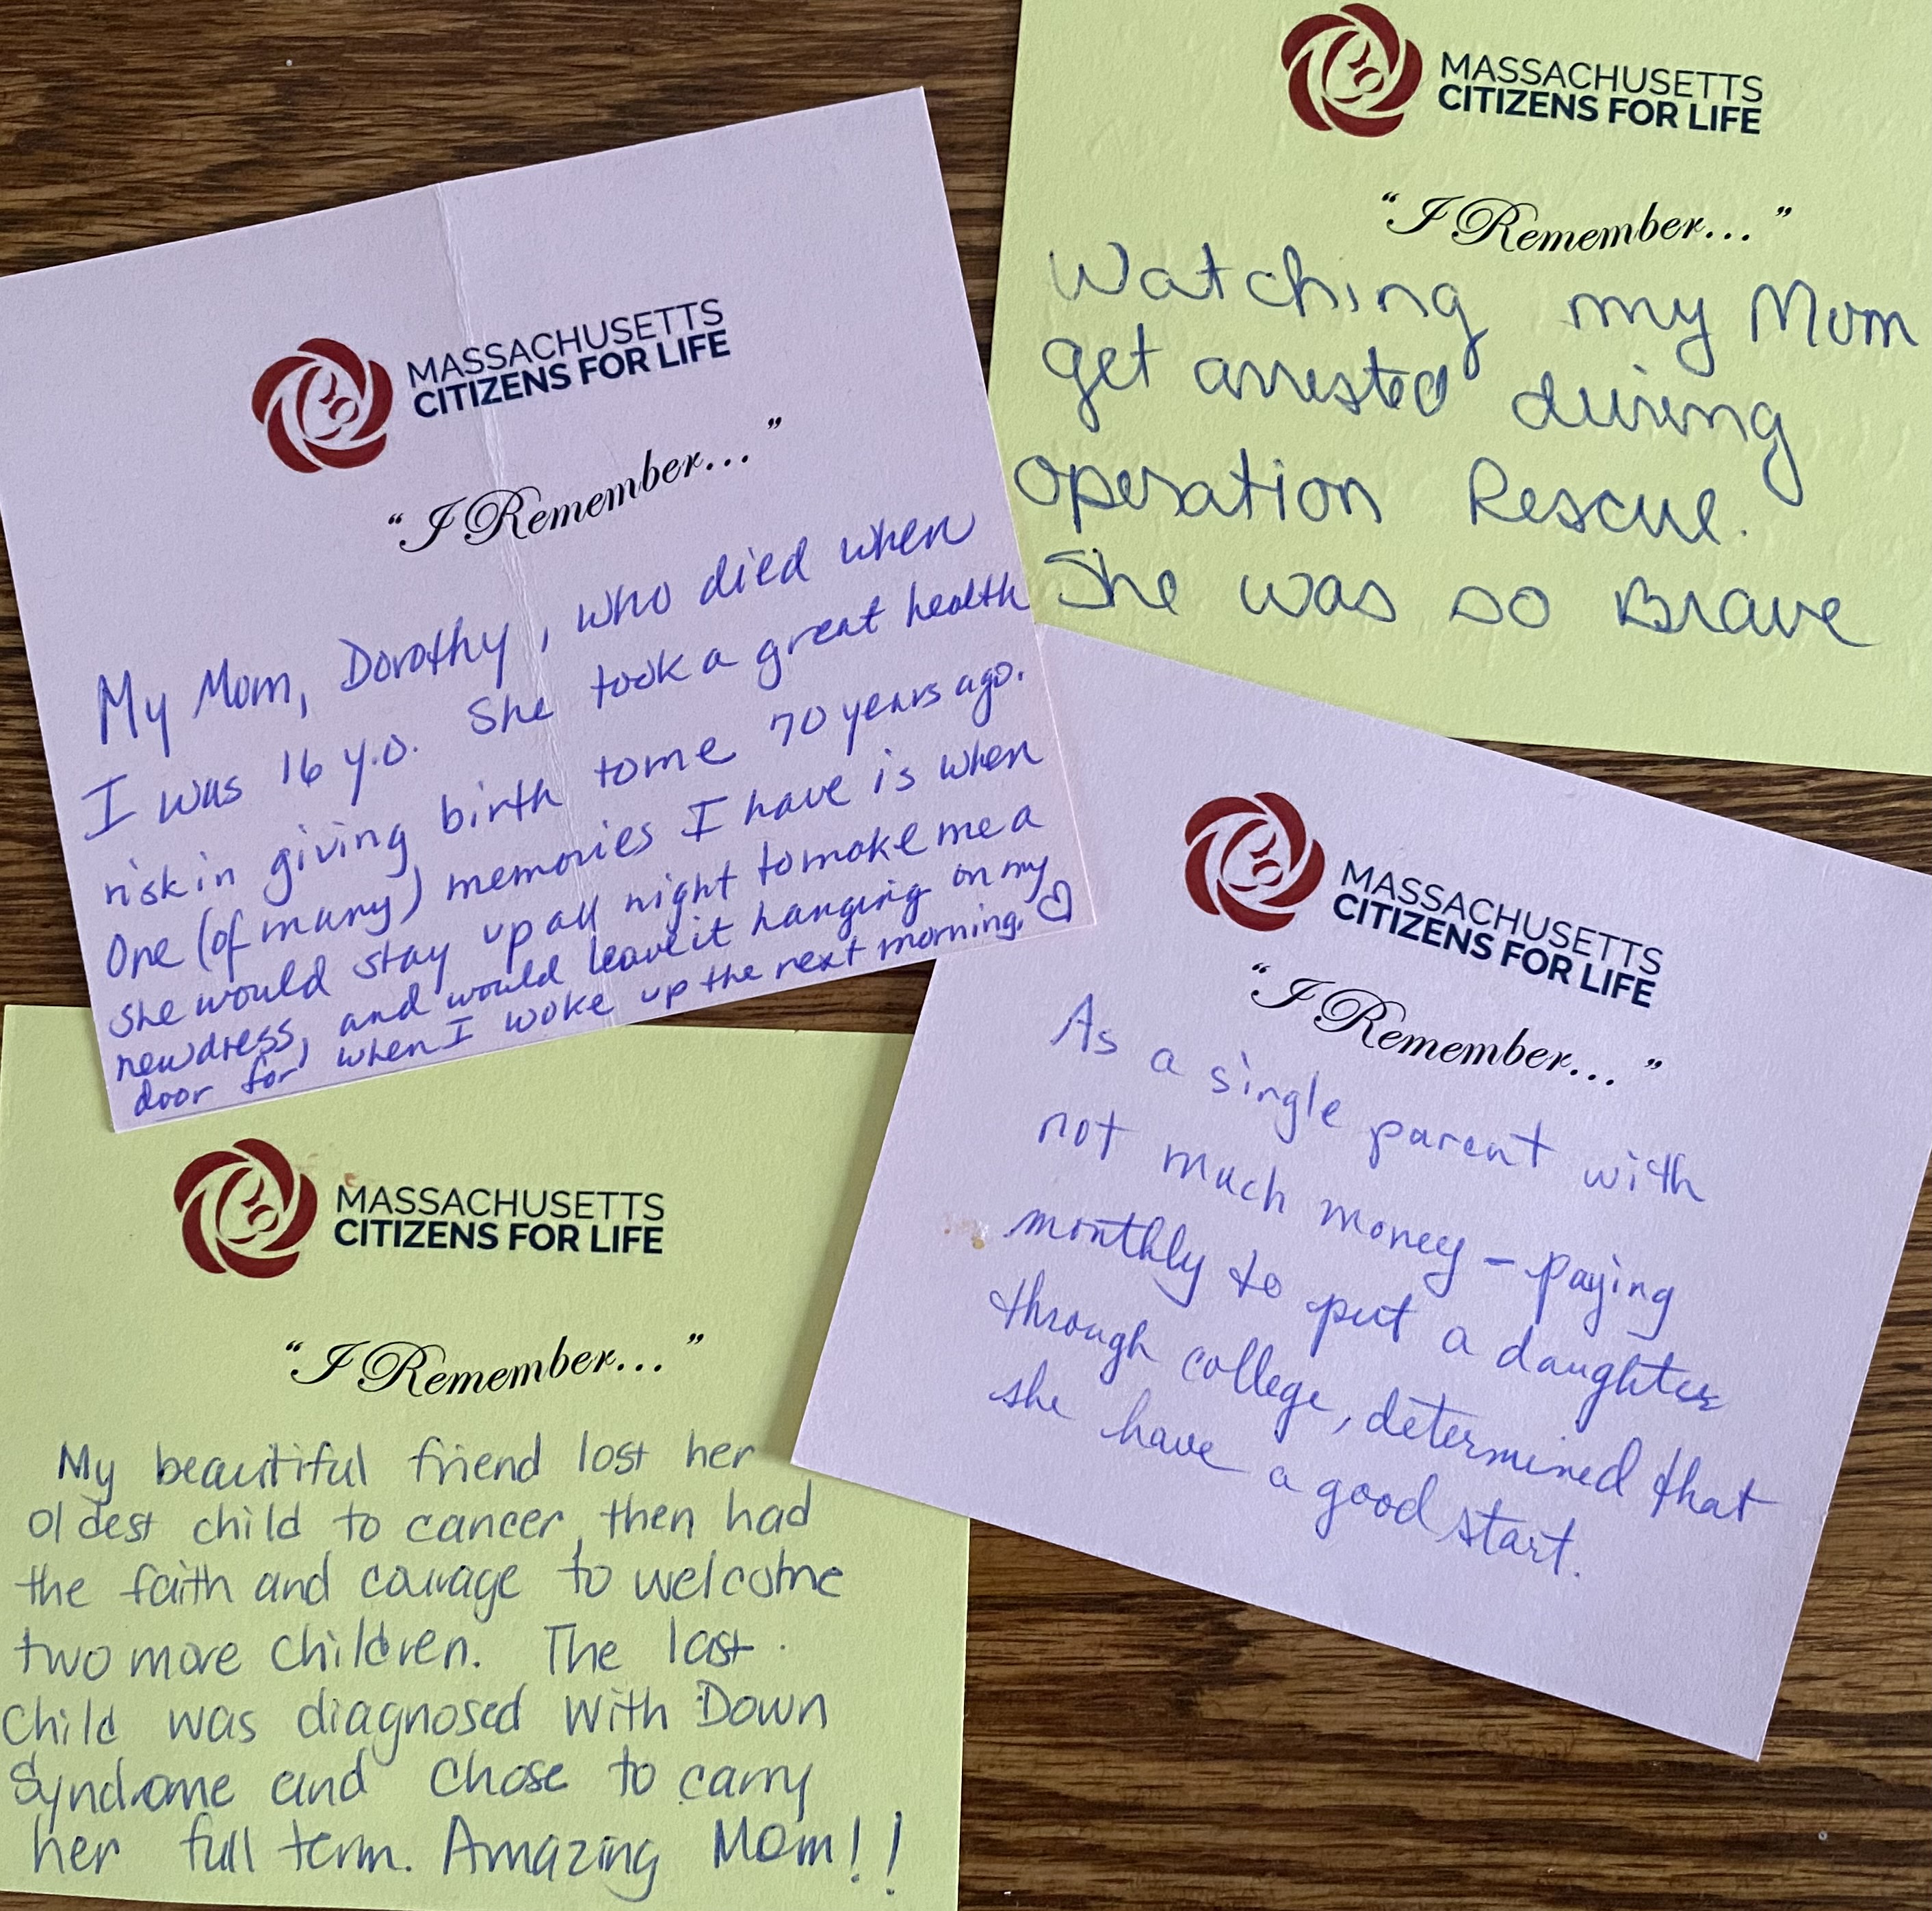 MASSACHUSETTS
CITIZENS FOR LIFE
“I Remember...”
My Mom, Dorothy, who died when
I was 16 y.o. She took a great health
risk in giving birth to me 70 years ago.
One (of many) memories I have is when
she would stay up all night to make me a
new dress, and would leave it hanging on my
door for when I woke up the next morning.
MASSACHUSETTS
CITIZENS FOR LIFE
“I Remember...”
Watching my Mom
get arrested during
operation Rescue.
She was so Brave
MASSACHUSETTS
CITIZENS FOR LIFE
“I Remember...”
As a single parent with
not much money – paying
monthly to put a daughter
through college, determined that
she have a good start.
MASSACHUSETTS
CITIZENS FOR LIFE
“I Remember...”
My beautiful friend lost her
oldest child to cancer, then had
the faith and courage to welcome
two more children. The last
child was diagnosed with Down
Syndrome and chose to carry
her full term. Amazing Mom!!